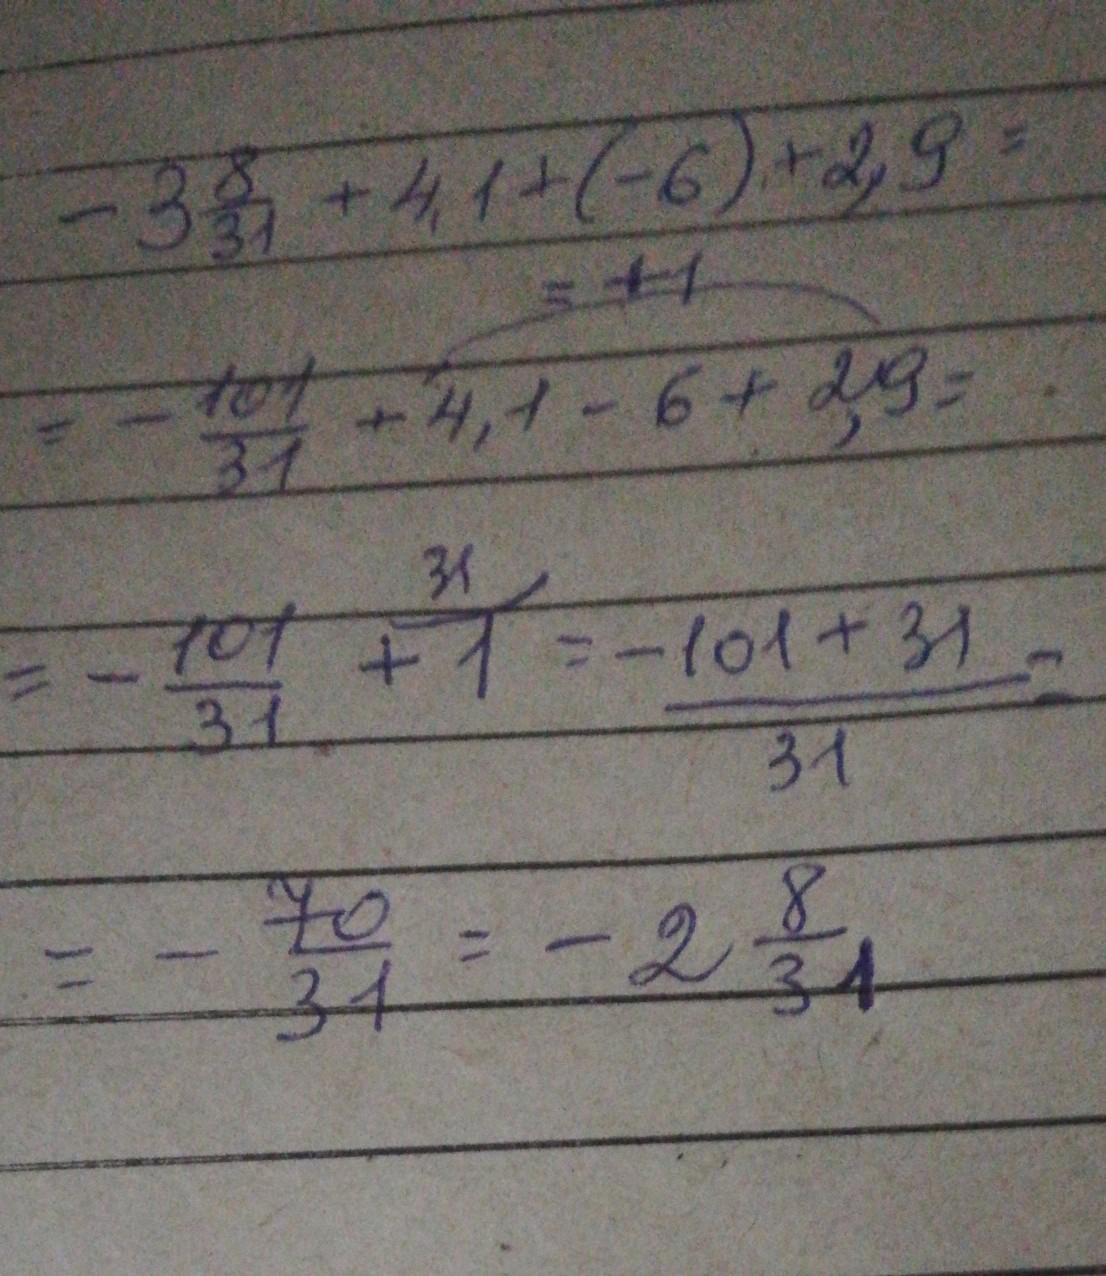 - 3 8/31 + 4,1 + (-6) + 2,9 =
= +1
= - 101/31 + 4,1 - 6 + 2,9 =
31
= - 101/31 + 1 = -101 + 31/31 =
= - 70/31 = - 2 8/31